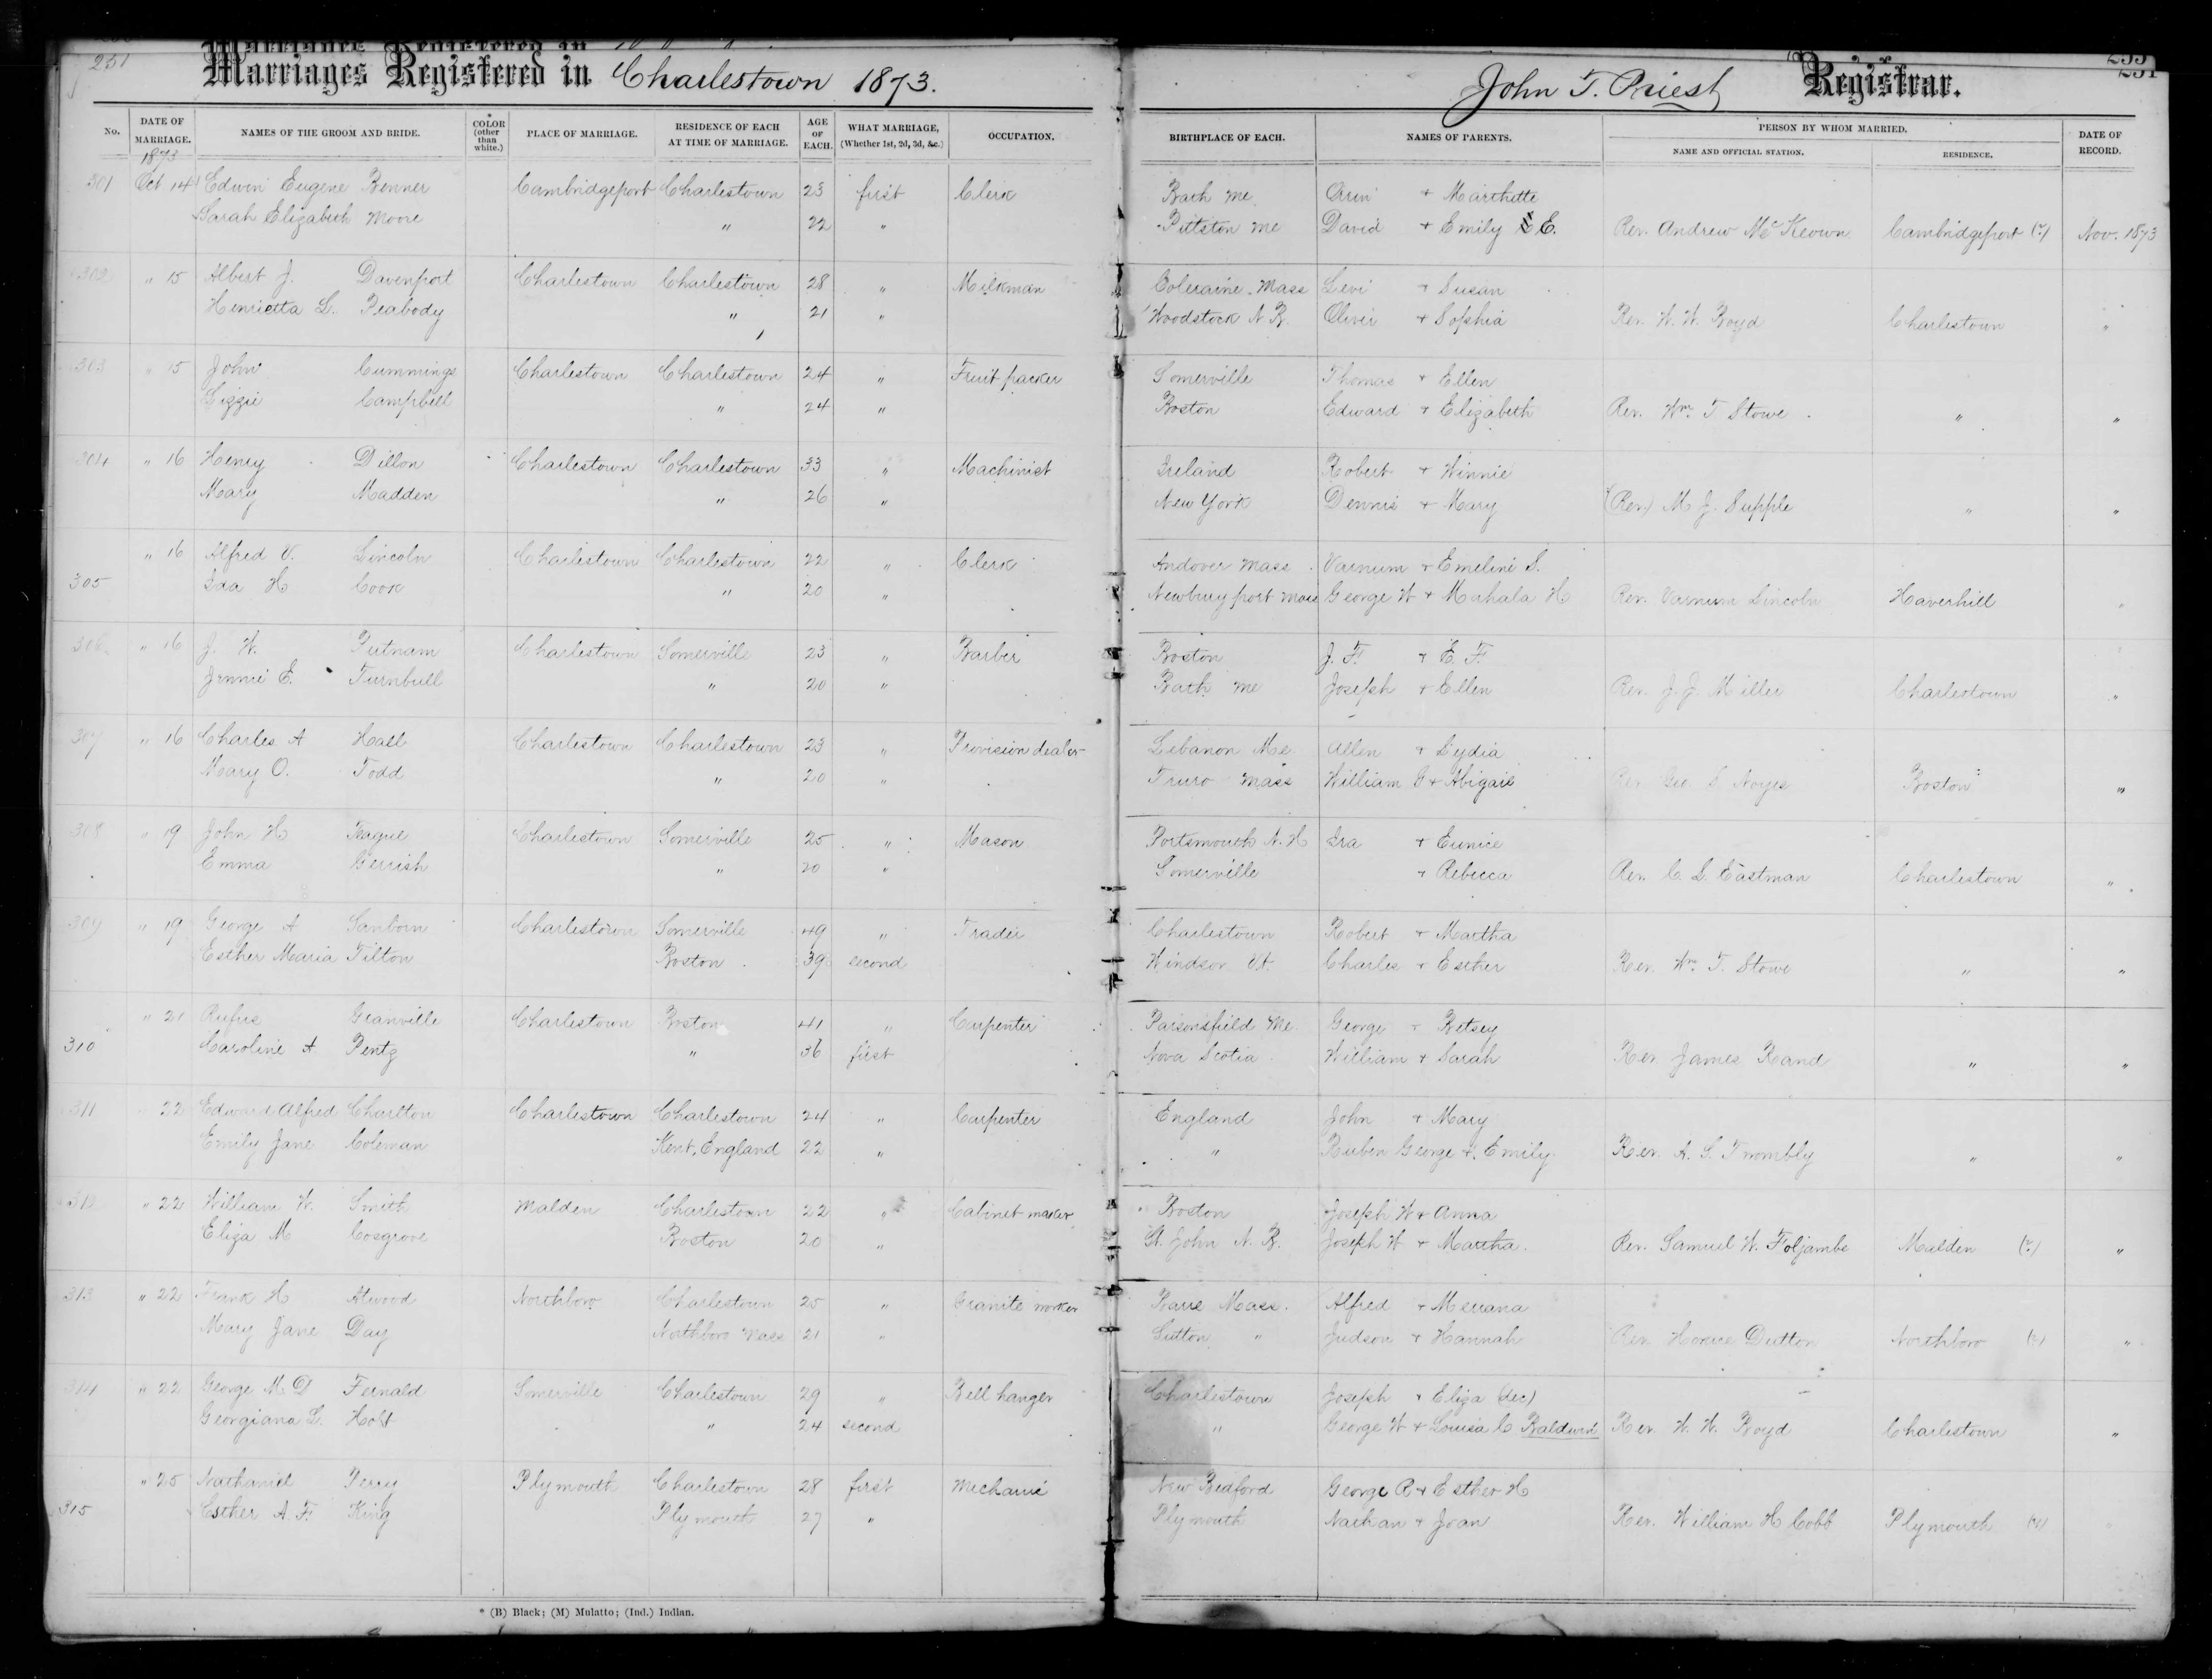 251 Marriages Registered in Charlestown 1873. John T. Priest Registrar. 251
No. DATE OF MARRIAGE. NAMES OF THE GROOM AND BRIDE. * COLOR (other than white.) PLACE OF MARRIAGE. RESIDENCE OF EACH AT TIME OF MARRIAGE. AGE OF EACH. WHAT MARRIAGE, (Whether 1st, 2d, 3d, &c.) OCCUPATION. BIRTHPLACE OF EACH. NAMES OF PARENTS. PERSON BY WHOM MARRIED. NAME AND OFFICIAL STATION. RESIDENCE. DATE OF RECORD.
1873
301 Oct 14 Edwin Eugene Benner Cambridgeport Charlestown 23 first Clerk Bath Me. Orin + Marthette
Sarah Elizabeth Moore " 22 " Pittston Me David + Emily E. Rev. Andrew McKeown Cambridgeport Nov. 1873
302 " 15 Albert J. Davenport Charlestown Charlestown 28 " Milkman Coleraine Mass Levi + Susan
Henrietta L. Peabody " 21 " Woodstock N B. Oliver + Sophia Rev. W. W. Boyd Charlestown "
303 " 15 John Cummings Charlestown Charlestown 24 " Fruit packer Somerville Thomas + Ellen
Lizzie Campbell " 24 " Boston Edward + Elizabeth Rev. Wm. T Stowe " "
304 " 16 Henry Dillon Charlestown Charlestown 33 " Machinist Ireland Robert + Winnie
Mary Madden " 26 " New York Dennis + Mary (Rev) M J. Supple " "
" 16 Alfred V. Lincoln Charlestown Charlestown 22 " Clerk Andover Mass. Varnum + Emeline S.
305 Ida H Cook " 20 " Newburyport Mass George W + Mahala H Rev. Varnum Lincoln Haverhill "
306 " 16 J. W. Putnam Charlestown Somerville 23 " Barber Boston J. F. + E. F.
Jennie E. Turnbull " 20 " Bath Me Joseph + Ellen Rev. J. J. Miller Charlestown "
307 " 16 Charles A Hall Charlestown Charlestown 23 " Provision dealer Lebanon Me. Allen + Lydia
Mary O. Todd " 20 " Truro Mass William + Abigail Rev. Geo. S Noyes Boston "
308 " 19 John H Teague Charlestown Somerville 25 " Mason Portsmouth N. H Ira + Eunice
Emma Gerrish " 20 " Somerville + Rebecca Rev. C. L. Eastman Charlestown "
309 " 19 George A Sanborn Charlestown Somerville 49 " Trader Charlestown Robert + Martha
Esther Maria Tilton Boston 39 second Windsor Vt. Charles + Esther Rev. Wm. T. Stowe " "
" 21 Rufus Granville Charlestown Boston 41 " Carpenter Parsonsfield Me. George + Betsey
310 Caroline A Pentz " 36 first Nova Scotia William + Sarah Rev James Rand " "
311 " 22 Edward Alfred Charlton Charlestown Charlestown 24 " Carpenter England John + Mary
Emily Jane Coleman Kent, England 22 " " Ruben George + Emily Rev. A. S. Twombly " "
312 " 22 William W. Smith Malden Charlestown 22 " Cabinet maker Boston Joseph W + Anna
Eliza M Cosgrove Boston 20 " St. John N. B. Joseph W + Martha. Rev. Samuel W. Foljambe Malden "
313 " 22 Frank H Atwood Northboro Charlestown 25 " Granite worker Barre Mass. Alfred +
Mary Jane Day Northboro Mass 21 " Sutton " Judson + Hannah Rev. Horace Dutton Northboro "
314 " 22 George M D Fernald Somerville Charlestown 29 " Bell hanger Charlestown Joseph + Eliza (dec)
Georgiana L. Holt " 24 second " George W + Louisa C Baldwin Rev. W. W. Boyd Charlestown "
" 25 Nathaniel Perry Plymouth Charlestown 28 first Mechanic New Bedford George R + Esther H
315 Esther A. F. King Plymouth 27 " Plymouth Nathan + Joan Rev. William H Cobb Plymouth "
* (B) Black; (M) Mulatto; (Ind.) Indian.